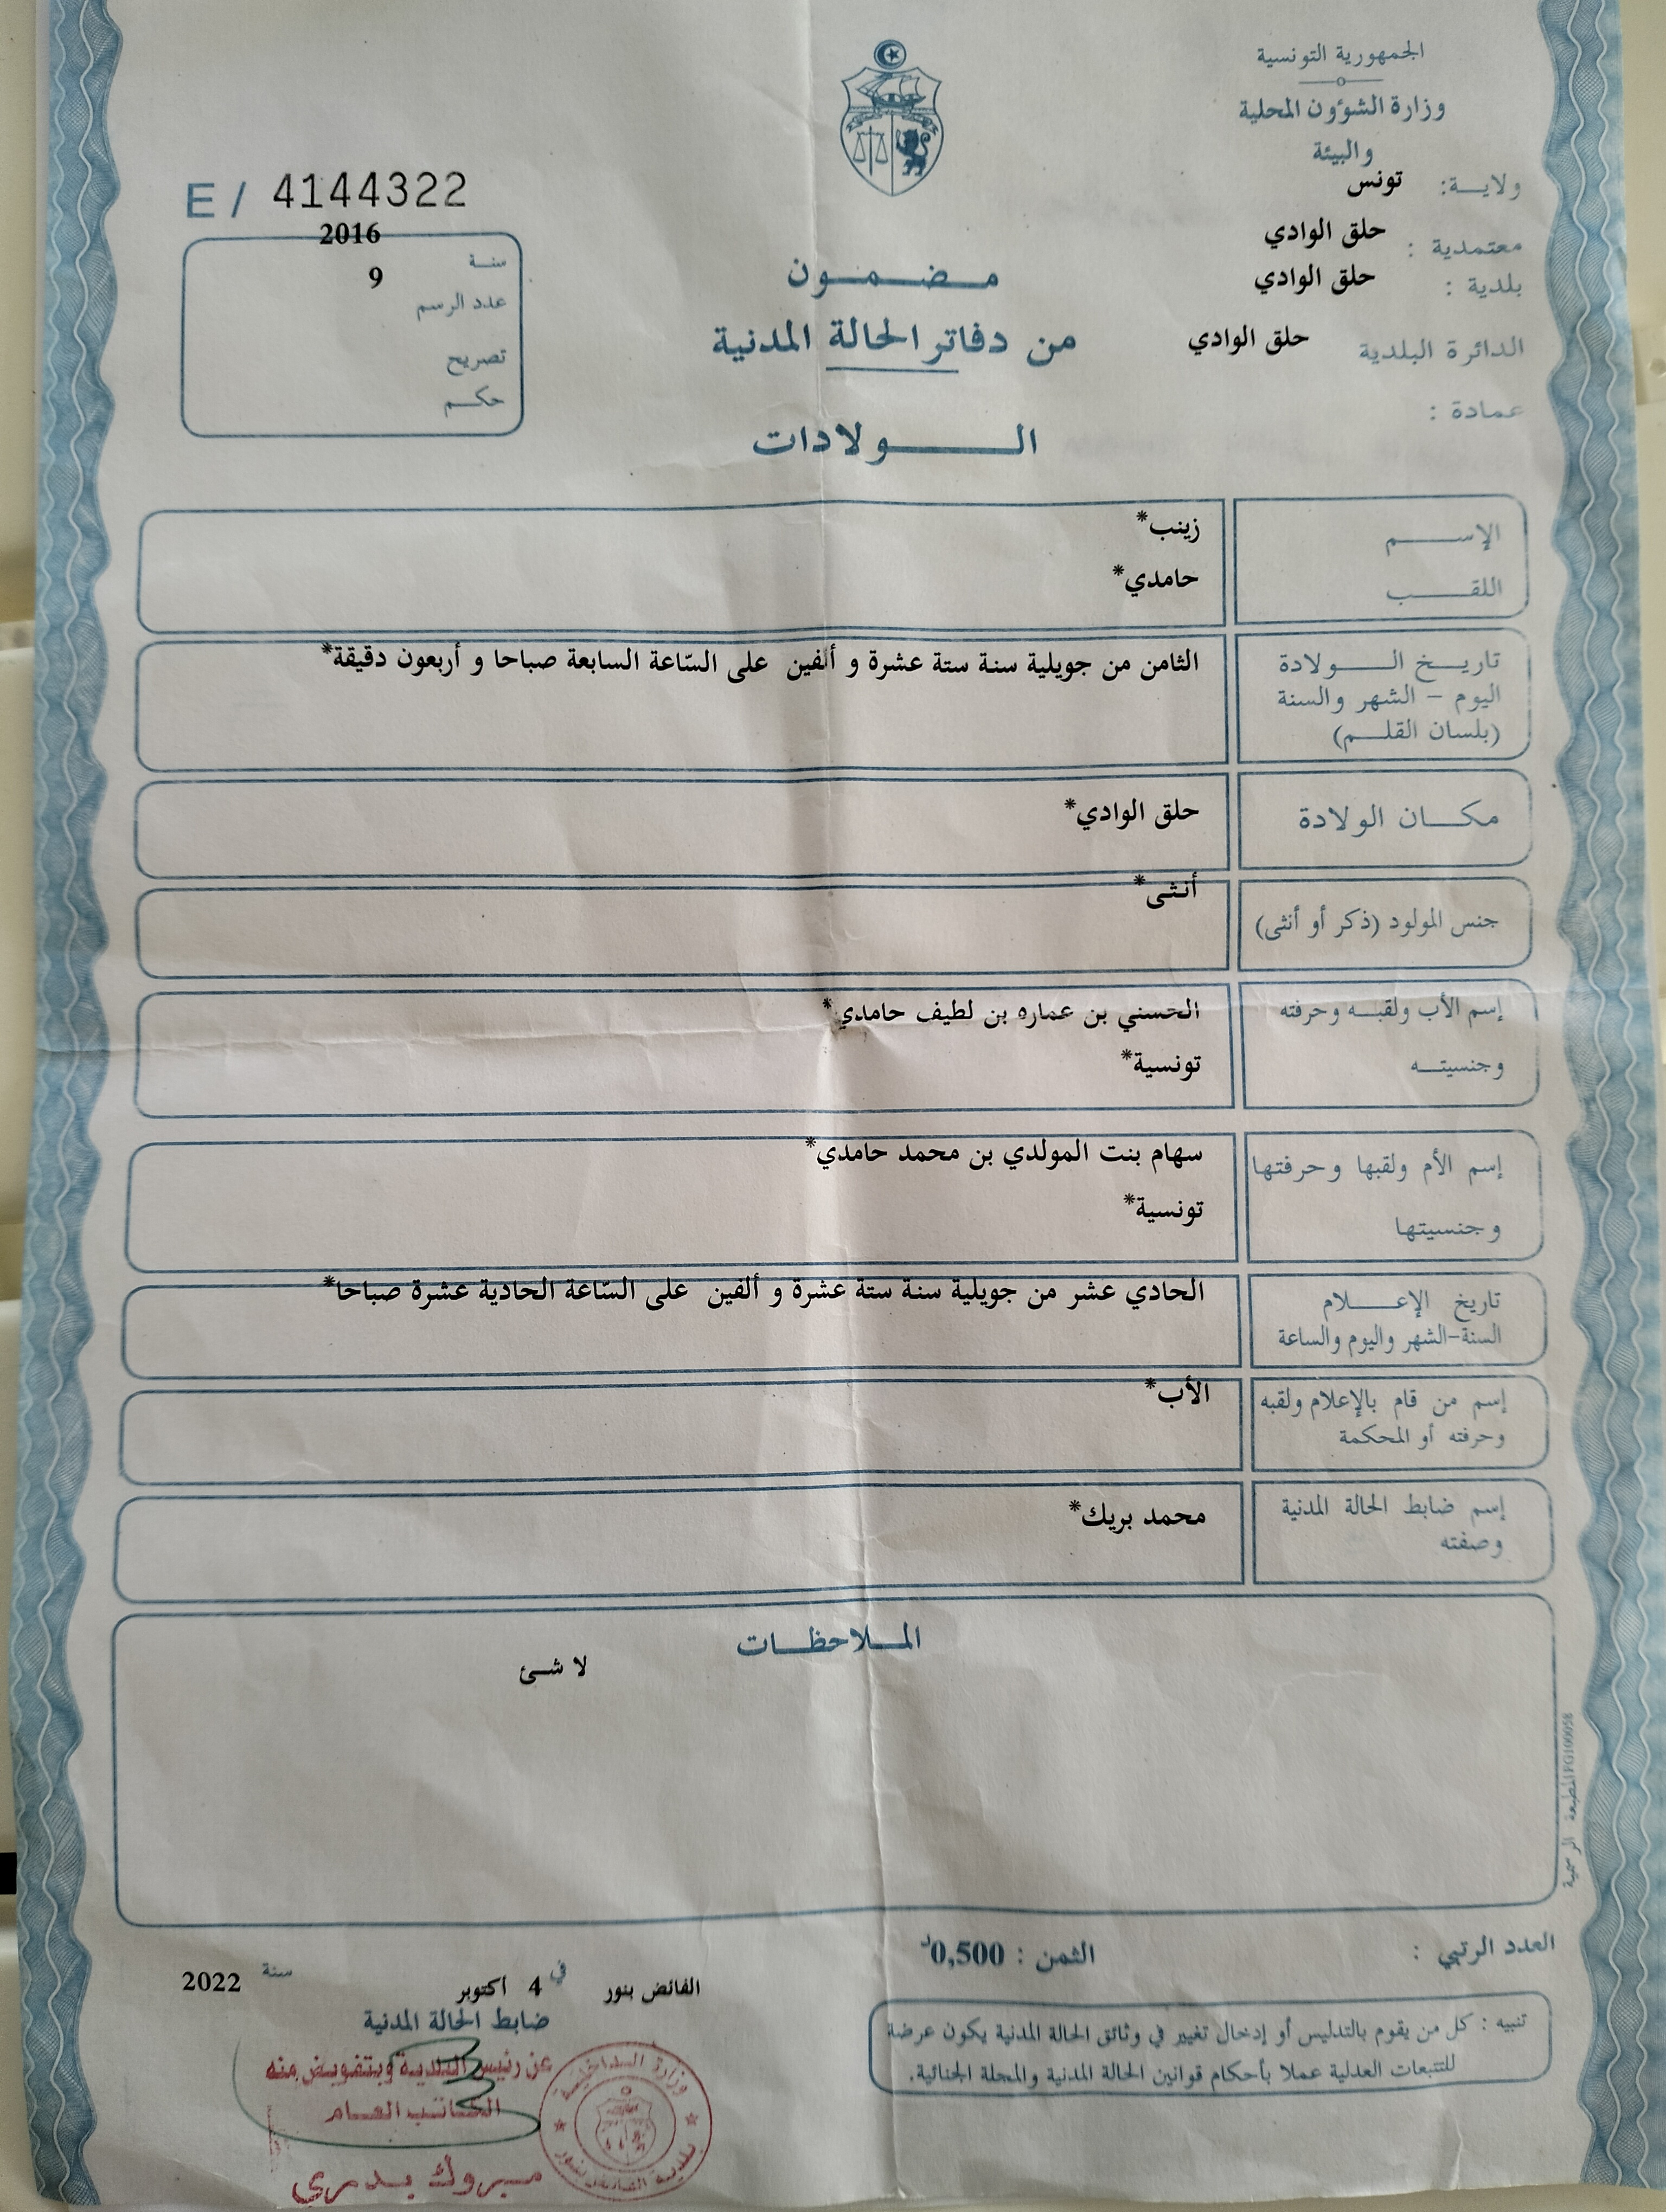 الجمهورية التونسية
وزارة الشؤون المحلية
والبيئة
ولاية: تونس
معتمدية : حلق الوادي
بلدية : حلق الوادي
الدائرة البلدية حلق الوادي
عمادة :
E / 4144322
سنة 2016
عدد الرسم 9
تصريح
حكم
مضمون
من دفاتر الحالة المدنية
الولادات
الإسم زينب*
اللقب حامدي*
تاريخ الولادة الثامن من جويلية سنة ستة عشرة و ألفين على السّاعة السابعة صباحا و أربعون دقيقة*
اليوم - الشهر والسنة
(بلسان القلم)
مكان الولادة حلق الوادي*
جنس المولود (ذكر أو أنثى) أنثى*
إسم الأب ولقبه وحرفته الحسني بن عماره بن لطيف حامدي*
وجنسيته تونسية*
إسم الأم ولقبها وحرفتها سهام بنت المولدي بن محمد حامدي*
وجنسيتها تونسية*
تاريخ الإعلام الحادي عشر من جويلية سنة ستة عشرة و ألفين على السّاعة الحادية عشرة صباحا*
السنة-الشهر واليوم والساعة
إسم من قام بالإعلام ولقبه الأب*
وحرفته أو المحكمة
إسم ضابط الحالة المدنية محمد بريك*
وصفته
الملاحظات
لا شئ
المطبعة الرسمية
العدد الرتبي :
الثمن : 0,500د
تنبيه : كل من يقوم بالتدليس أو إدخال تغيير في وثائق الحالة المدنية يكون عرضة
للتتبعات العدلية عملا بأحكام قوانين الحالة المدنية والمجلة الجنائية.
الفائض بنور في 4 أكتوبر سنة 2022
ضابط الحالة المدنية
عن رئيس البلدية وبتفويض منه
الكاتب العام
مبروك بدري
وزارة الداخلية
بلدية الفائض بنور